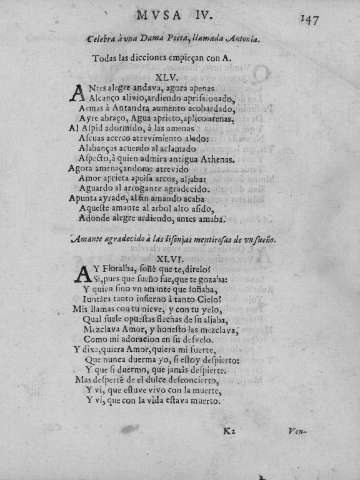 MVSA IV. 147
Celebra à vna Dama Poeta, llamada Antonia.
Todas las dicciones empieçan con A.
XLV.
ANtes alegre andava, agora apenas
Alcanço alivio, ardiendo aprisionado,
Armas à Antandra aumento acobardado,
Ayre abraço, Agua aprieto, aplico arenas.
Al Aspid adormido, à las amenas
Ascuas acerco atrevimiento alado:
Alabanças acuerdo al aclamado
Aspecto, à quien admira antigua Athenas.
Agora amenaçandome atrevido
Amor aprieta aprisa arcos, aljaba:
Aguardo al arrogante agradecido.
Apunta ayrado, al fin amando acaba
Aqueste amante al arbol alto asido,
Adonde alegre ardiendo, antes amaba.
Amante agradecido à las lisonjas mentirosas de vn sueño.
XLVI.
AY Floralba, soñè que te, direlo?
Si, pues que sueño fue, que te gozaba:
Y quien sino vn amante que soñaba,
Iuntàra tanto infierno à tanto Cielo?
Mis llamas con tu nieve, y con tu yelo,
Qual suele opuestas flechas de su aljaba,
Mezclava Amor, y honesto las mezclava,
Como mi adoracion en su desvelo.
Y dixe, quiera Amor, quiera mi suerte,
Que nunca duerma yo, si estoy despierto:
Y que si duermo, que jamàs despierte.
Mas despertè de el dulce desconcierto,
Y vi, que estuve vivo con la muerte,
Y vi, que con la vida estava muerto.
K2 Ven-